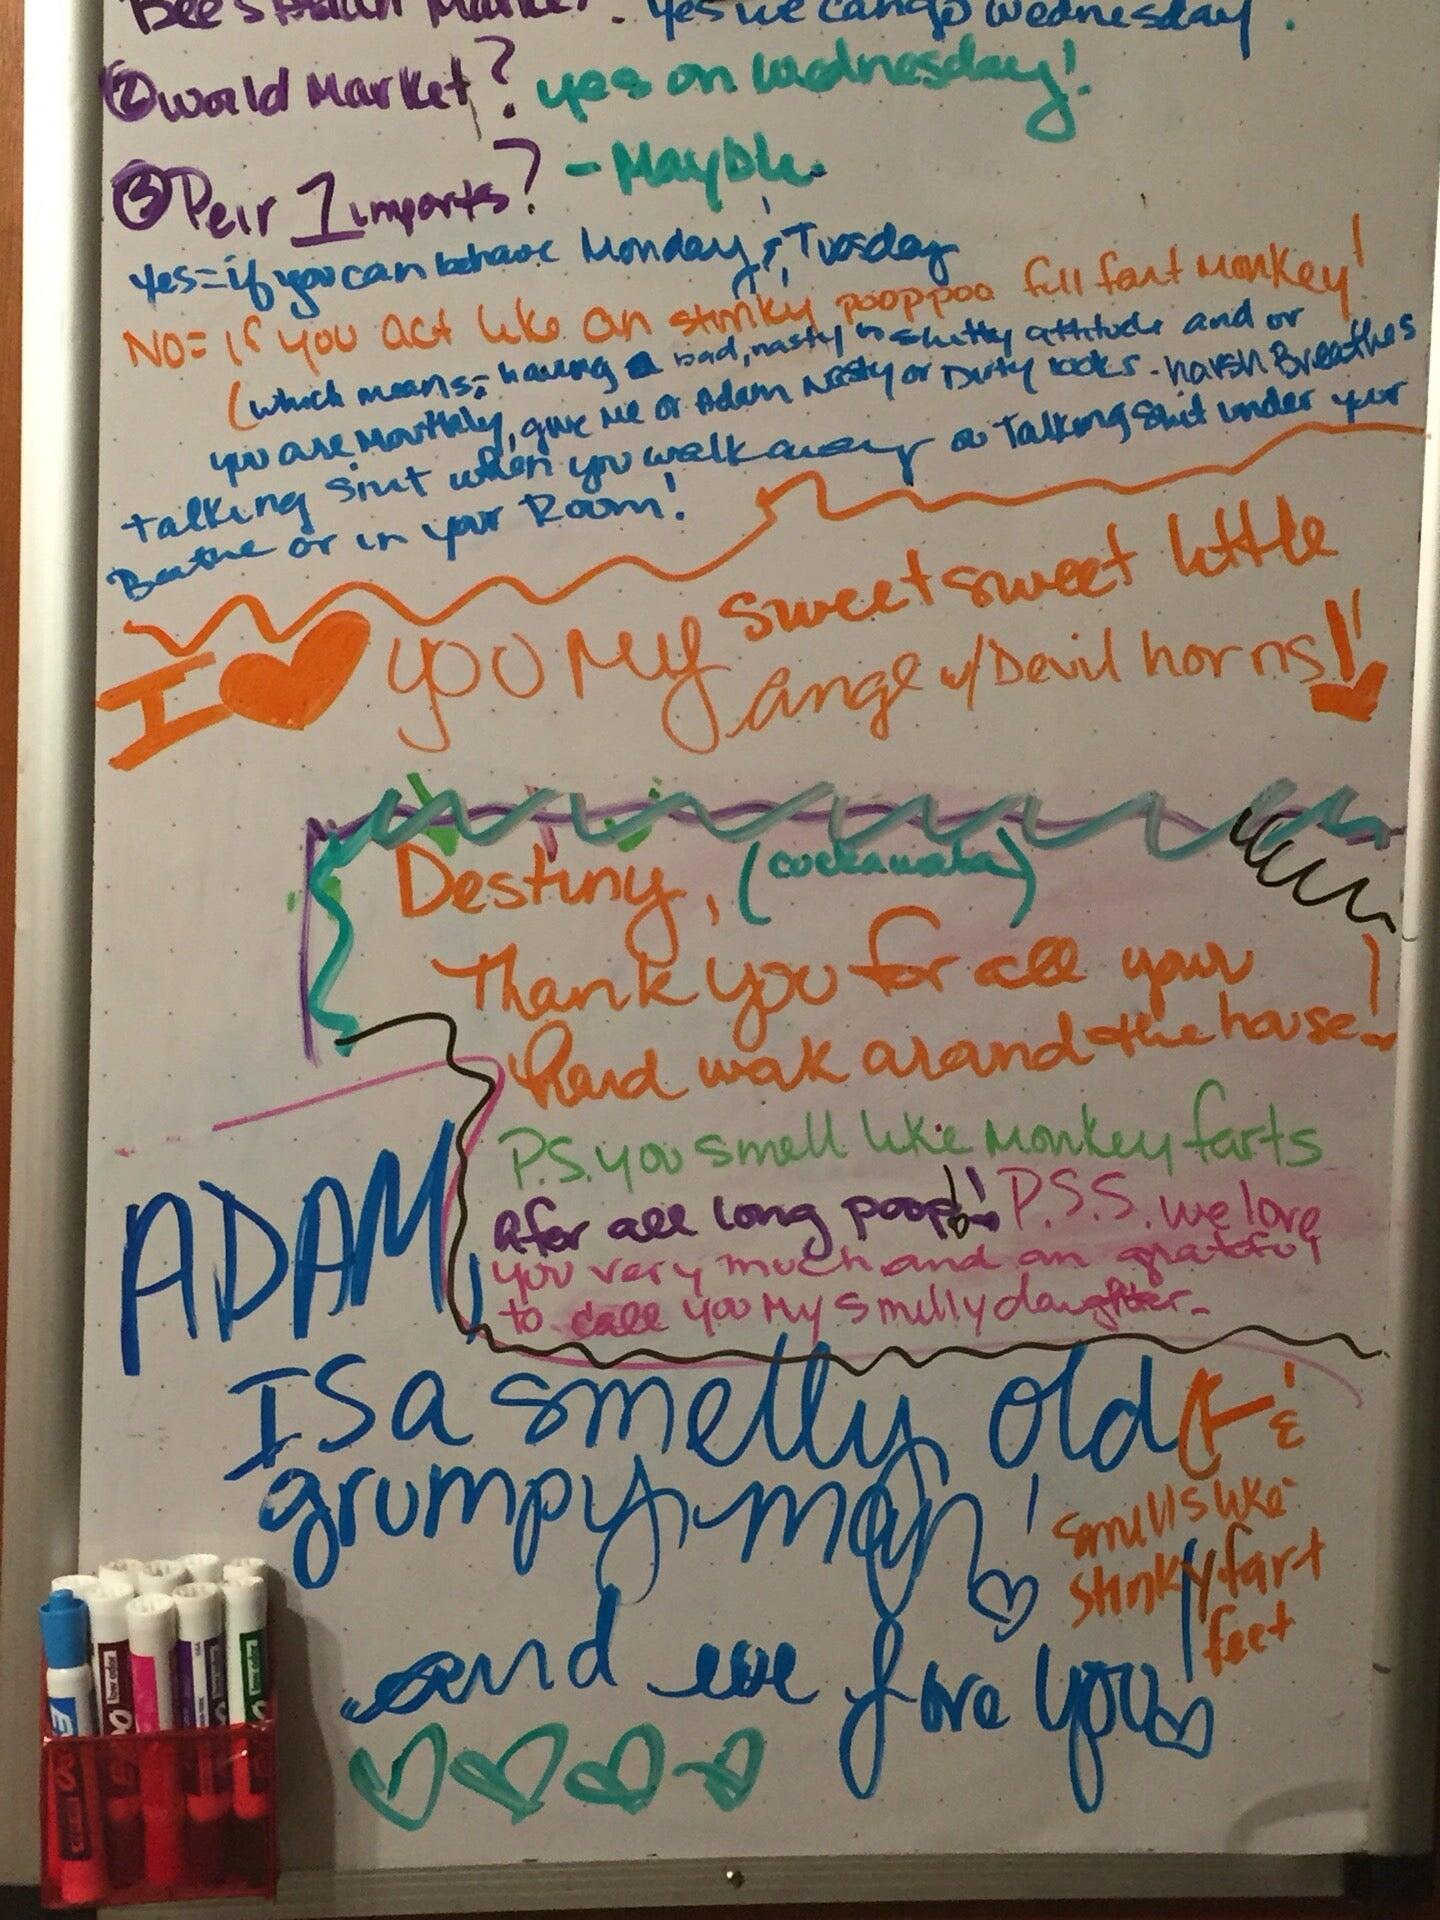 Bee's Asian Market. Yes we can go Wednesday.
② World Market? yes on Wednesday!
③ Peir 1 imports? - Maybe.
Yes = if you can behave Monday & Tuesday
NO = if you act like an stinky pooppoo full fart monkey!
(which means: having a bad, nasty shitty attitude and or
you are Mouthly, give me or Adam Nasty or Dirty looks. harsh Breathes
talking shit when you walk away or Talking Shit under your
Beathe or in your Room!
I you My sweet sweet little
angel w/ Devil horns!!
Destiny, (cockamaka)
Thank you for all your
hard work around the house!
P.S. you smell like Monkey farts
after all long poop! P.S.S. we love
you very much and am grateful
to call you My Smelly daughter.
ADAM,
IS a smelly old
grumpy man!
& smells like
stinky fart
feet
and we love you!